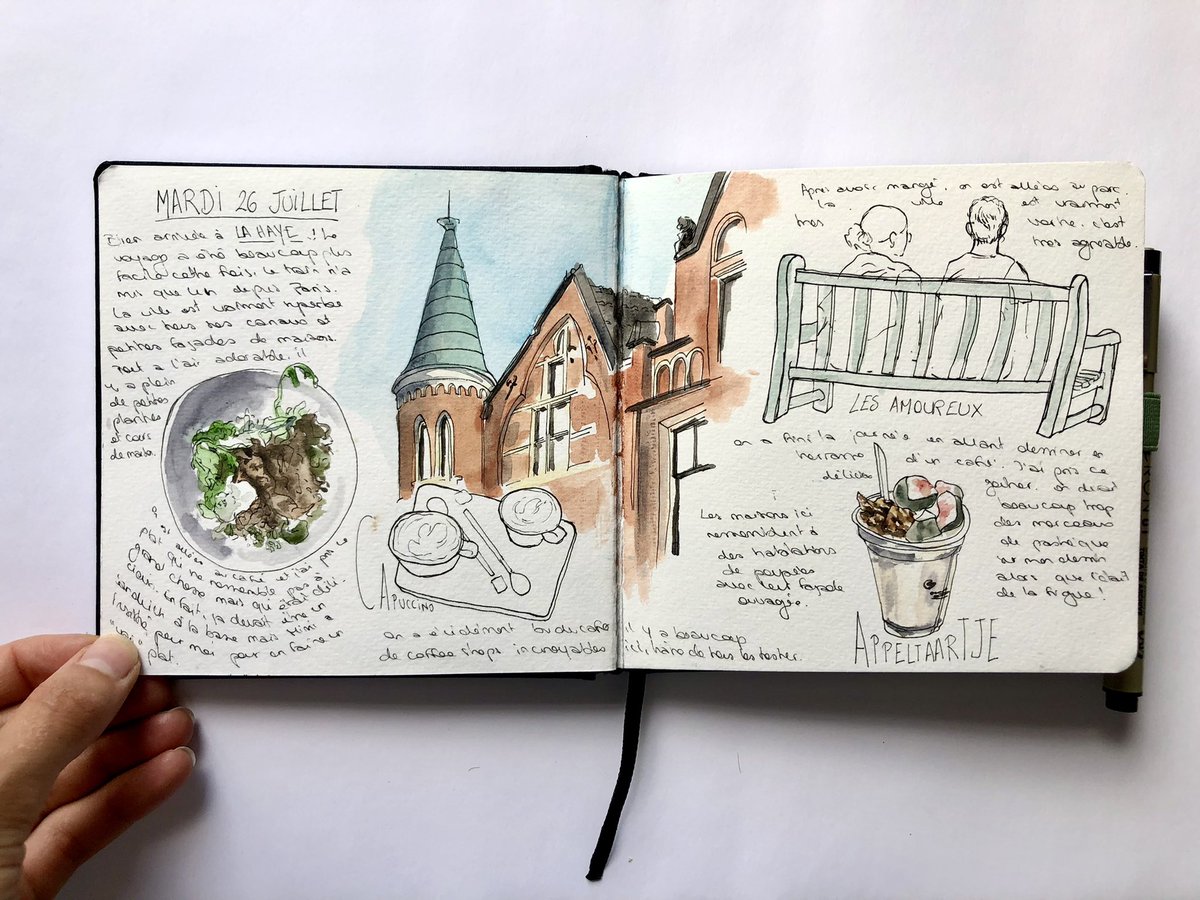 MARDI 26 JUILLET
Bien arrivée à LA HAYE ! Le
voyage a été beaucoup plus
facile cette fois, le train n'a
mis que depuis Paris.
La ville est vraiment superbe
avec tous ses canaux et
petites façades de maisons.
Tout a l'air adorable, il
y a plein
de petites
plantes
et cours
plat qui ne ressemble pas à
grand chose mais qui était déli-
cieux. En fait, ça devait être un
sandwich à la base mais Mimi a
pour moi pour en faire un
"vrai" plat.
CAPUCCINO
On a évidemment bu du café, il y a beaucoup
de coffee shops incroyables ici, hâte de tous les tester.
Après avoir mangé, on est allées au parc.
La ville est vraiment
très verte, c'est
très agréable.
LES AMOUREUX
On a fini la journée en allant dessiner en
terrasse d'un café. J'ai pris ce
délicieux goûter, on dirait
beaucoup trop
des morceaux
de pastèque
sur mon dessin
alors que c'était
de la figue !
Les maisons ici
ressemblent à
des habitations
de poupées
avec leur façade
ouvragée.
APPELTAARTJE